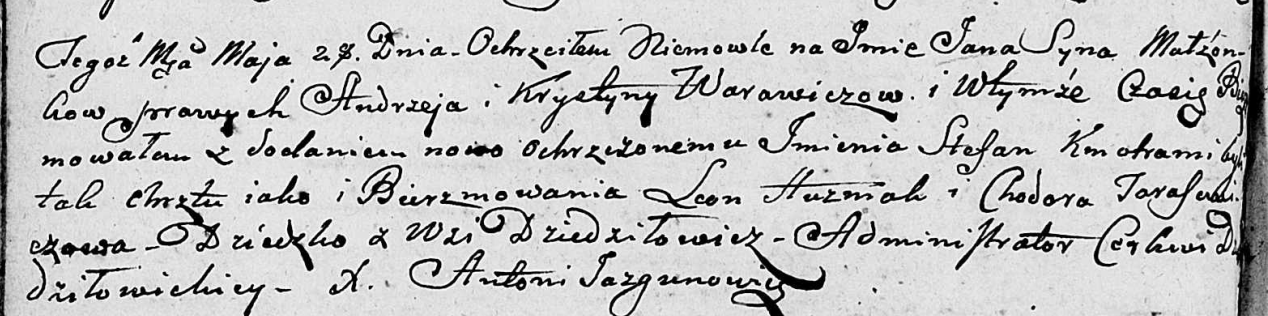 Tegoż Mca Maja 28. Dnia - Ochrzciłem Niemowle na Imie Jana Syna Małżon-
kow prawych Andrzeja i Krystyny Warawiczow. i Wtymże Czasię Bierz
mowałem z dodaniem nowo ochrzczonemu Imienia Stefan Kmotrami byli
tak chrztu iako i Bierzmowania Leon Huzniak i Chodora Tarasewi-
czowa - Dziecko z Wsi Dziedziłowicz - Administrator Cerkwi Dzie
dziłowickiey - X. Antoni Jazgunowicz